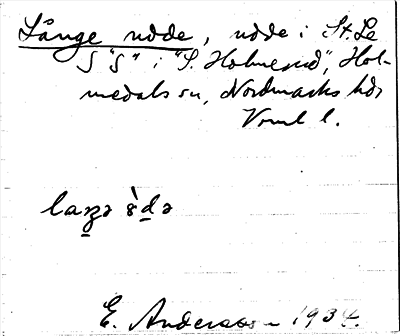 Långe udde, udde i St. Le
S "S" i "S. Holmerud", Hol-
medals sn, Nordmarks hd,
Vrml l.
E. Andersson 1934.